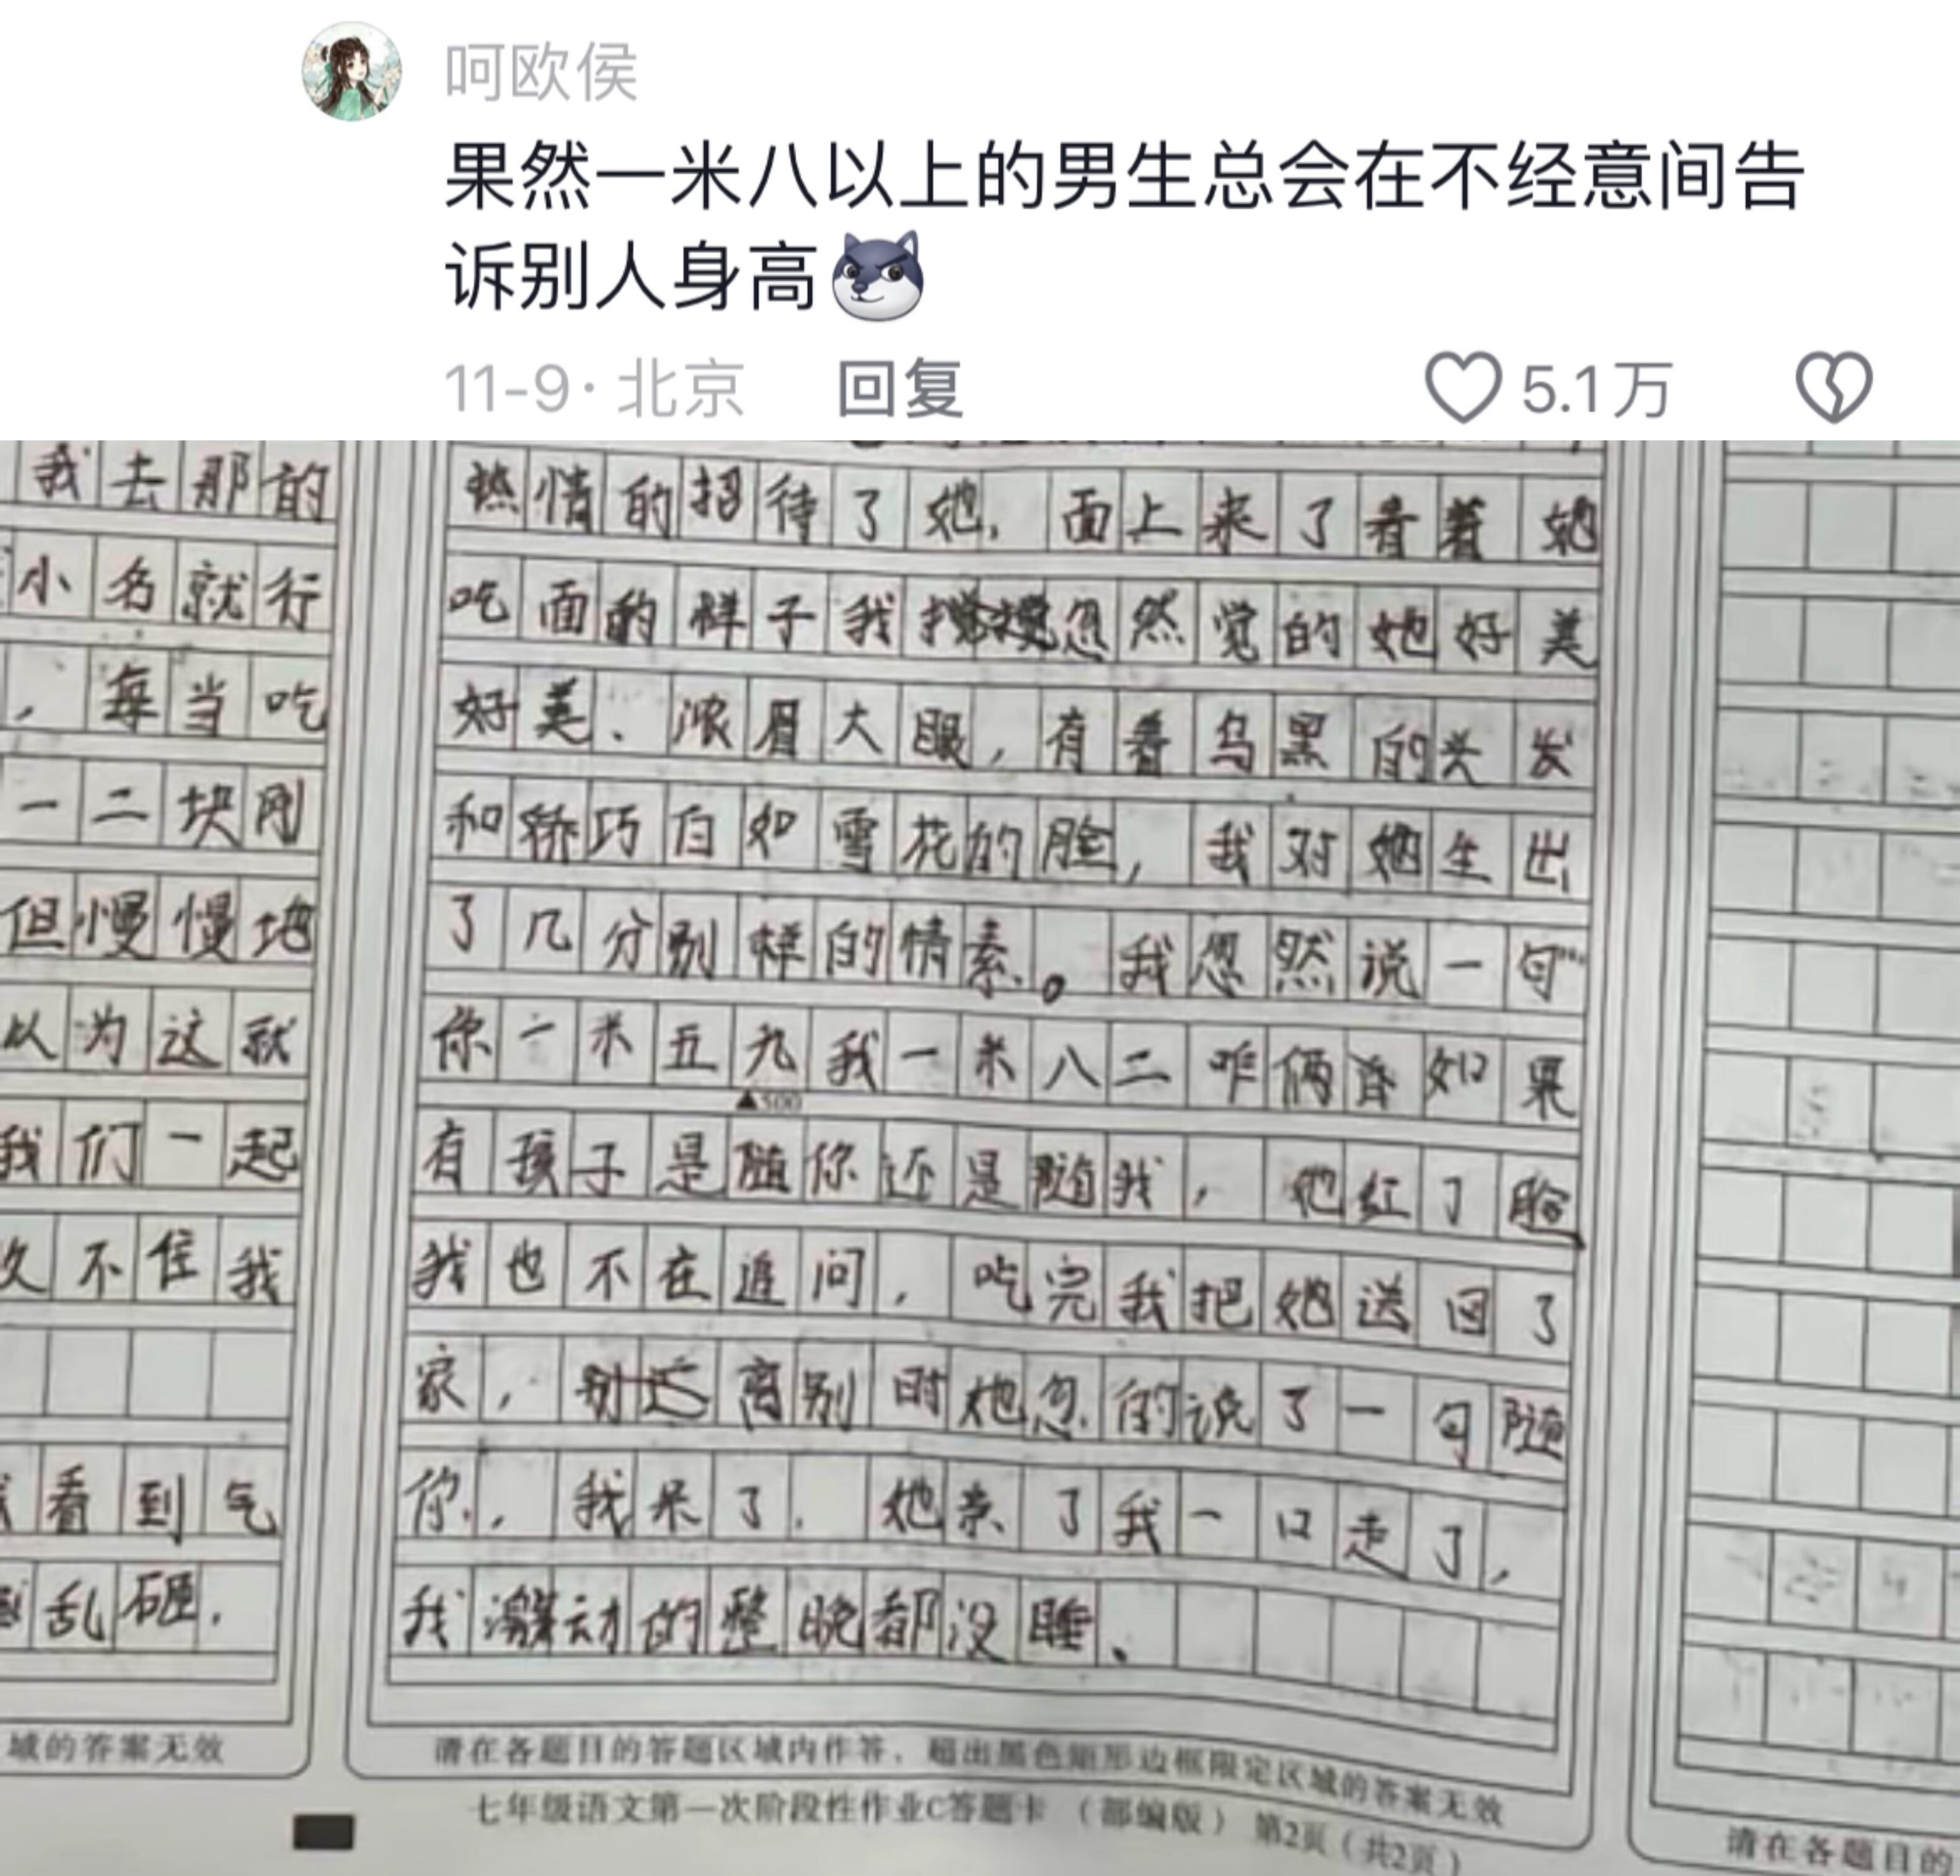 呵欧侯
果然一米八以上的男生总会在不经意间告
诉别人身高
11-9·北京 回复 5.1万
我去那的
小名就行
，每当吃
一二块刚
但慢慢地
以为这就
我们一起
久不住我
看到气
乱砸.
热情的招待了她,面上来了看着她
吃面的样子我忽然觉的她好美
好美、浓眉大眼，有着乌黑的头发
和娇巧白如雪花的脸，我对她生出
了几分别样的情素。我忽然说一句…
你一米五九我一米八二咱俩 如果
▲500
有孩子是随你还是随我，她红了脸
我也不在追问，吃完我把她送回了
家，离别时她忽的说了一句随
你.，我呆了.她亲了我一口走了，
我激动的整晚都没睡.
域的答案无效
请在各题目的答题区域内作答，超出黑色矩形边框限定区域的答案无效
七年级语文第一次阶段性作业C答题卡（部编版）第2页（共2页）
请在各题目的